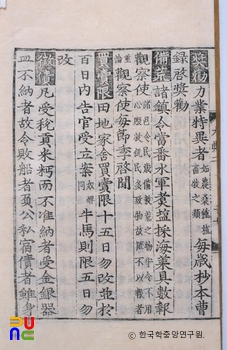 奬勸力業特異者每歲抄本曹
錄啓奬勸
備荒諸鎭令當番水軍煮鹽採海菜具數報
觀察使
觀察使每節季啓聞
買賣限田地家舍買賣限十五日勿改並於
百日內告官受立案奴婢同牛馬則限五日勿
改
徵債凡受稅貢米麪而不准納者受金銀器
皿不納者故令敗船者負公私宿債者雖
ⓒ 한국학중앙연구원.